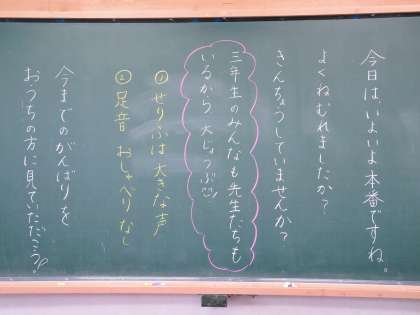 今日は、いよいよ本番ですね。
よくねむれましたか?
きんちょうしていませんか?
三年生のみんなも先生たちも
いるから 大じょうぶ
①せりふは大きな声
②足音 おしゃべりなし
今までのがんばりを
おうちの方に見ていただこう!